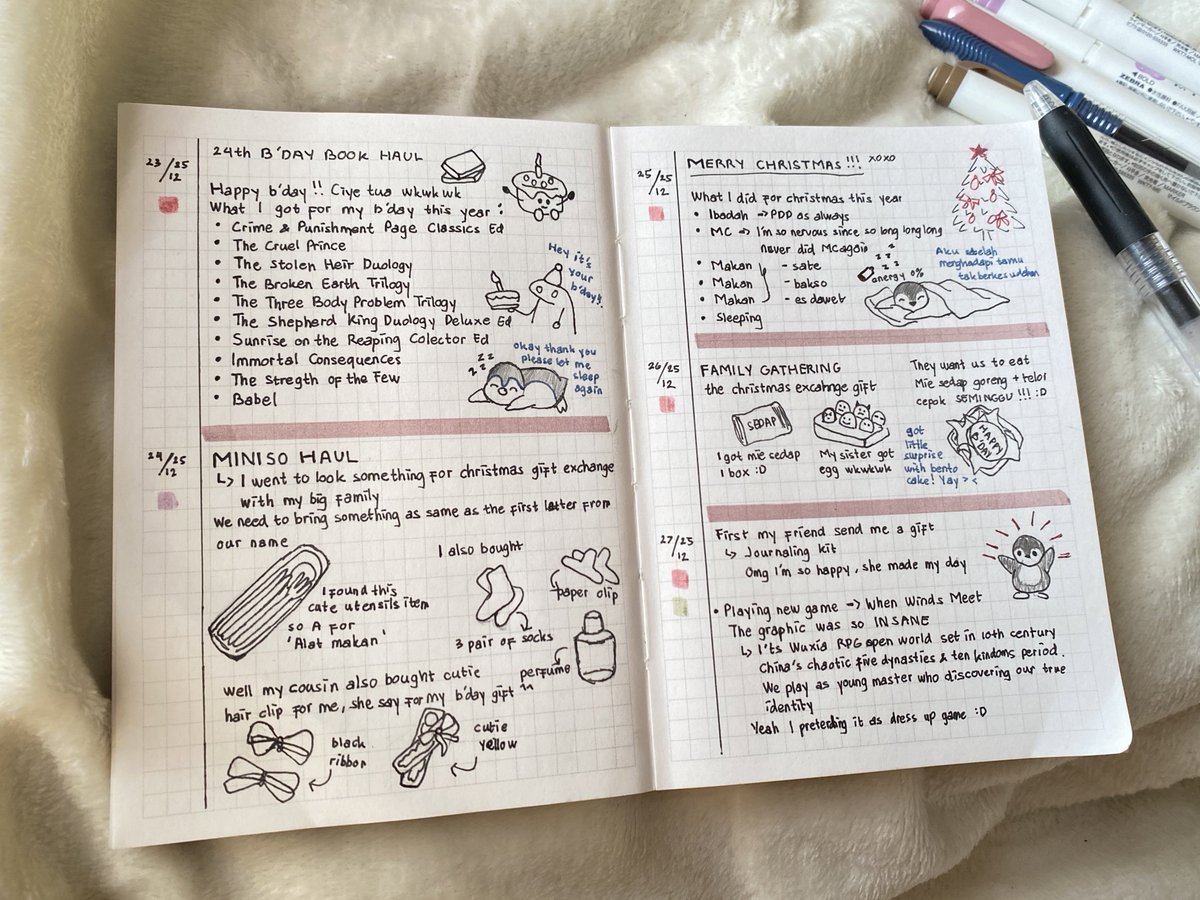 23/25
12
24th B'DAY BOOK HAUL
Happy b'day !! Ciye tua wkwkwk
What I got for my b'day this year :
• Crime & Punishment Page Classics Ed
• The Cruel Prince
• The Stolen Heir Duology
• The Broken Earth Trilogy
• The Three Body Problem Trilogy
• The Shepherd King Duology Deluxe Ed
• Sunrise on the Reaping Colector Ed
• Immortal Consequences
• The Stregth of the Few
• Babel
Hey it's
your
b'day!!
z z z
z z z
okay thank you
please let me
sleep
again
24/25
12
MINISO HAUL
↳ I went to look something for christmas gift exchange
with my big family
We need to bring something as same as the first latter from
our name
I found this
cute utensils item
so A for
'Alat makan'
I also bought
3 pair of socks
paper clip
perfume
Well my cousin also bought cutie
hair clip for me, she say for my b'day gift ^^
black
ribbon
cutie
yellow
25/25
12
MERRY CHRISTMAS !!! xoxo
What I did for christmas this year
• Ibadah → PDP as always
• MC → I'm so nervous since so long long long
never did MC again
• Makan - sate
• Makan - bakso
• Makan - es dawet
• Sleeping
z z
z z
energy 0%
Aku setelah
menghadapi tamu
tak berkesudahan
26/25
12
FAMILY GATHERING
the christmas excahnge gift
SEDAP
I got mie sedap
1 box :D
My sister got
egg wkwkwk
They want us to eat
Mie sedap goreng + telor
cepok SEMINGGU !!! :D
got
little
surprise
with bento
cake! Yay > <
HAPPY
B'DAY
27/25
12
First my friend send me a gift
↳ Journaling kit
Omg I'm so happy, she made my day
• Playing new game → When Winds Meet
The graphic was so INSANE
↳ I'ts Wuxia RPG open world set in 10th century
China's chaotic five dynasties & ten kindoms period.
We play as young master who discovering our true
identity
Yeah I pretending it as dress up game :D
BOLD
ZEBRA